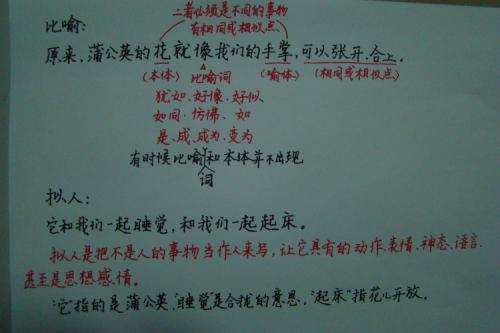 比喻:
二者必须是不同的事物
有相同或相似点
原来,蒲公英的花就像我们的手掌,可以张开、合上。
(本体) 比喻词 (喻体) (相同或相似点)
犹如、好像、好似、
如同、仿佛、如
是、成、成为、变为
有时候比喻词和本体并不出现
拟人:
它和我们一起睡觉,和我们一起起床。
拟人是把不是人的事物当作人来写,让它具有的动作、表情、神态、语言、
甚至是思想感情。
"它"指的是蒲公英,"睡觉"是合拢的意思,"起床"指花儿开放。